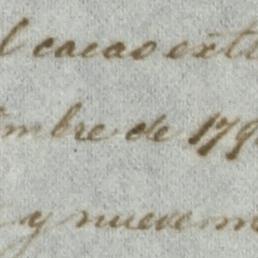 l cacao ext
mbre de 179
y nueve m